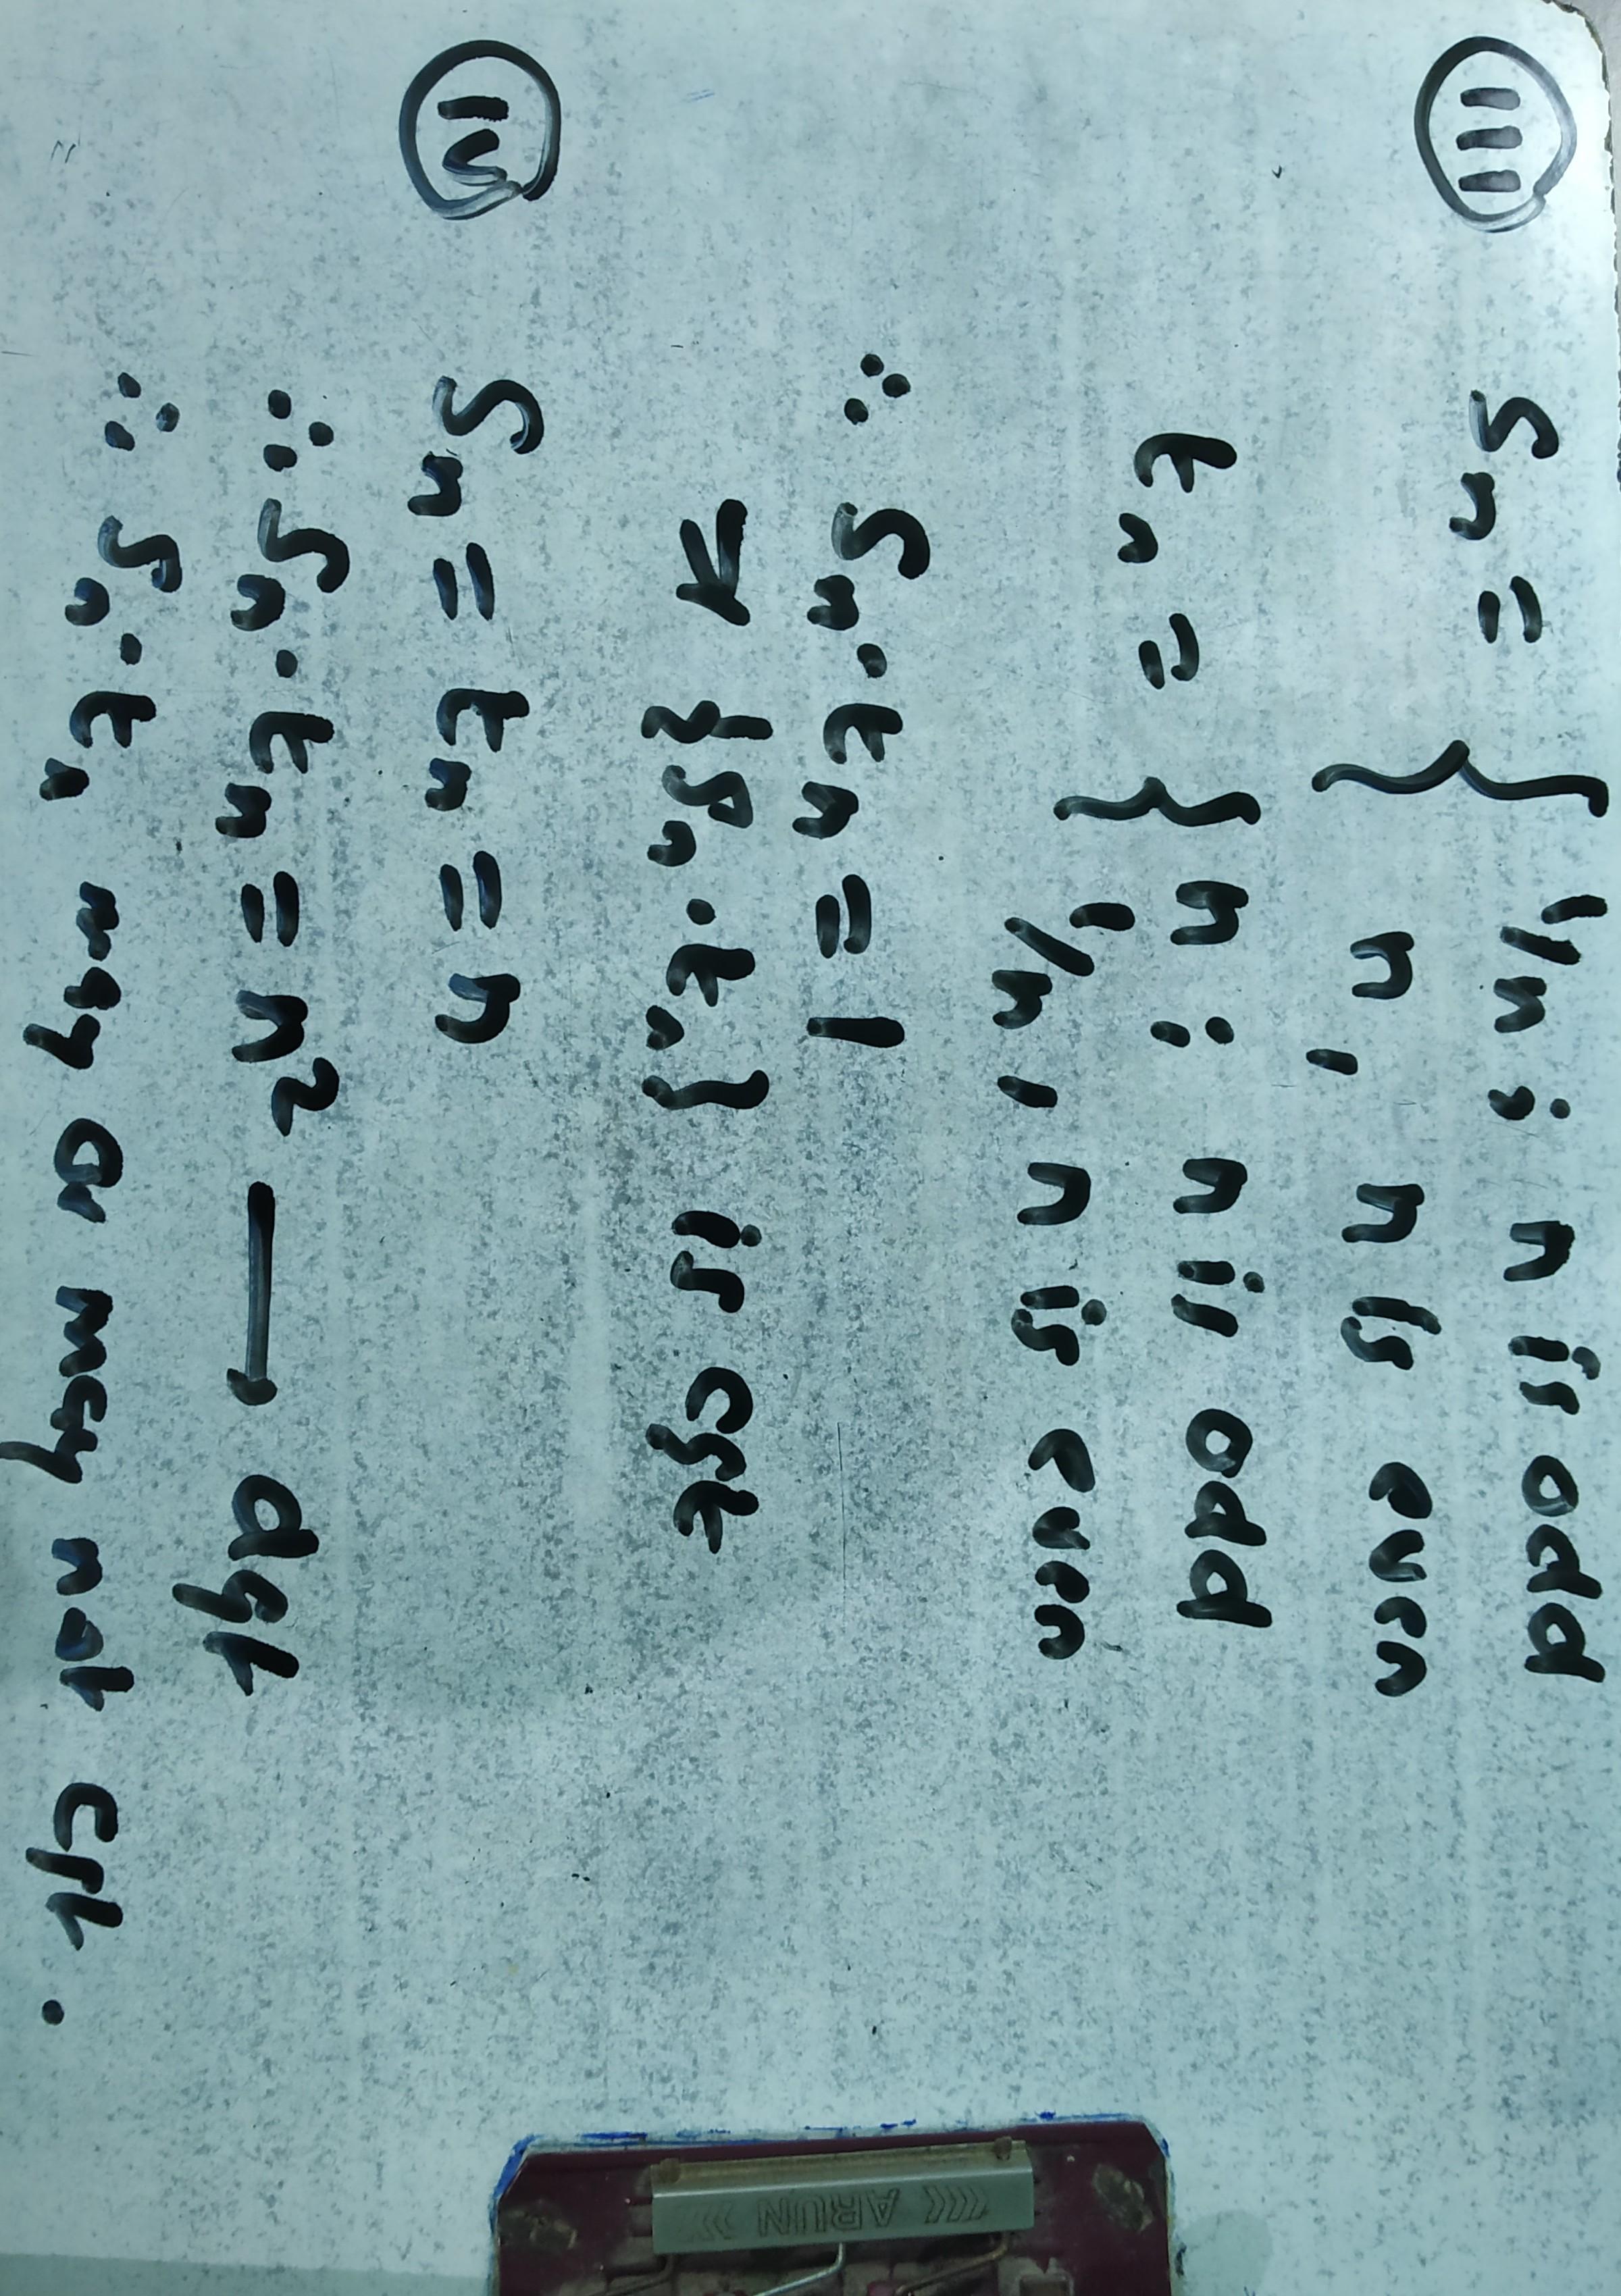 III
Sn = { 1/n ; n is odd
n , n is even
tn = { n ; n is odd
1/n , n is even
∴ Sn . tn = 1
& {Sn . tn} is cgt
IV
Sn = tn = n
∴ Sn . tn = n² → dgt
∴ Sn . tn may or may not cgt .
ARUN